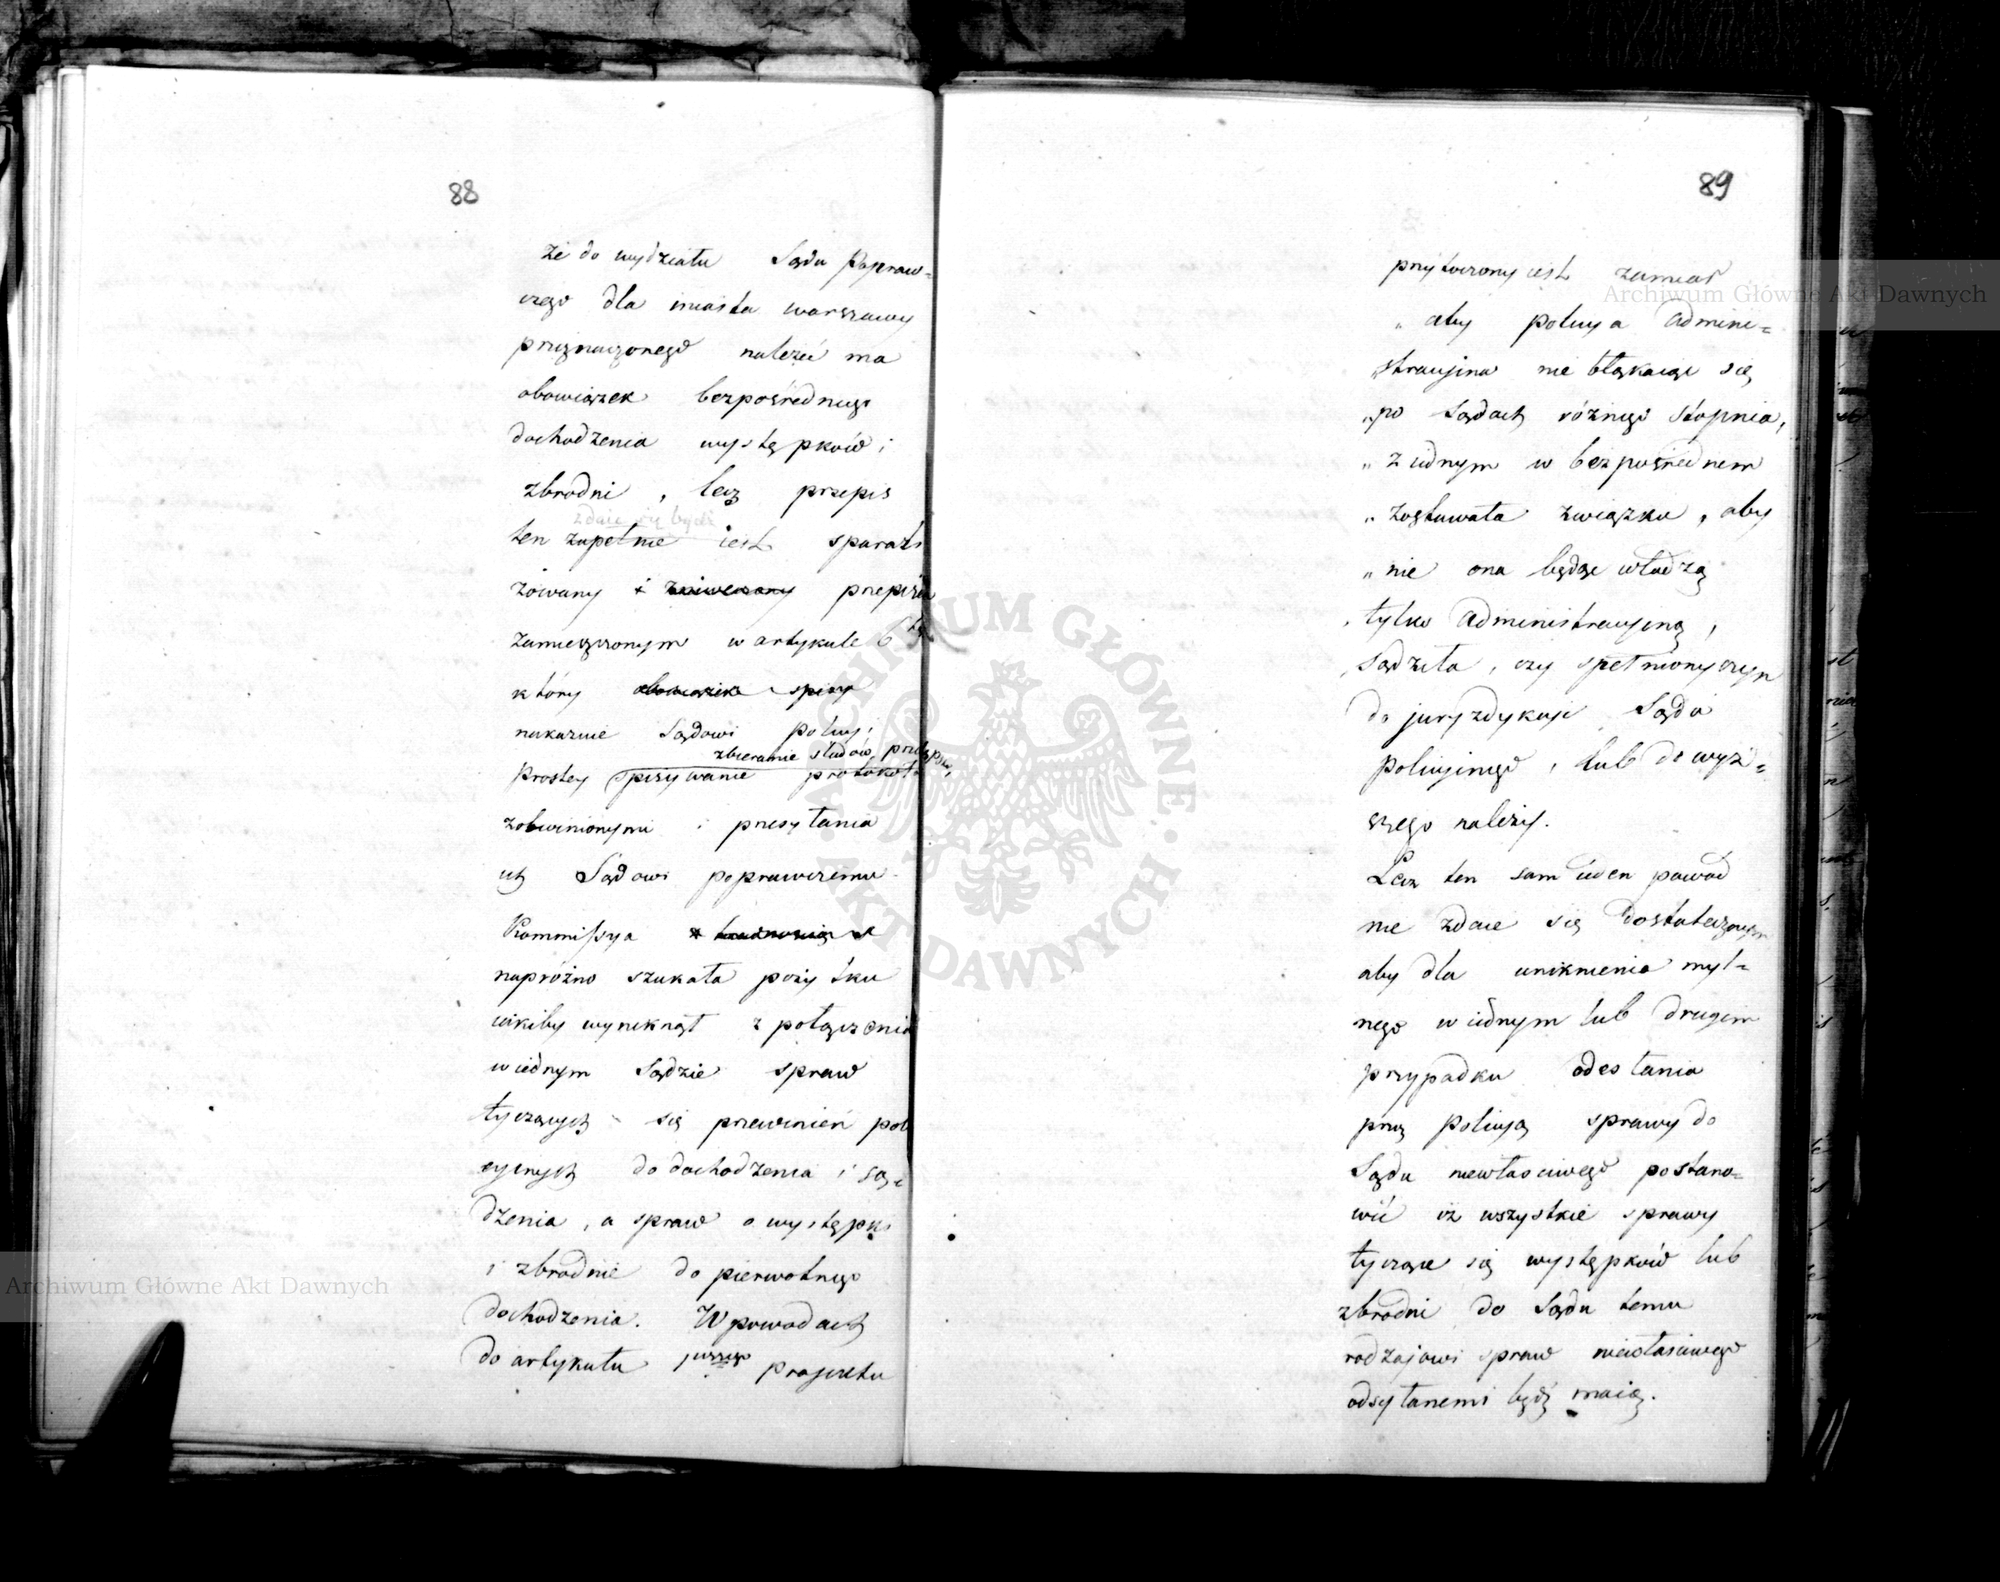 88
że do wydziału Sądu Popraw=
czego dla miasta warszawy
przeznaczonego należeć ma
obowiązek bezpośredniego
dochodzenia występków i
zbrodni, lecz przepis
zdaie się bydź
ten zupełnie iest sparali
żowany i zniweczony przepisem
zamieszczonym w artykule 6tym
który obowiązek spisy
nakazuie Sądowi policyi
zbieranie śladów, przestępstw,
prostey spisywanie protokoł
zobwinionymi i przesyłania
ich Sądowi poprawczemu
Kommissya z trudnością
napróżno szukała pożytku
iakiby wyniknął z połączenia
wiednym Sądzie spraw
tyczących się przewinień poli
cyinych do dochodzenia i są=
dzenia, a spraw o występki
i zbrodnie do pierwotnego
dochodzenia. W powodach
do artykułu pierwszego projektu
89
przytoczony iest zamiar
„ aby policya admini=
„stracyjna nie błąkaiąc się
„po Sądach różnego stopnia,
„ z iednym w bezpośrednem
„ zostawała związku, aby
„ nie ona będąc władzą
„ tylko administracyjną,
„ sądziła, czy spełniony czyn
do juryzdykcyi Sądu
policyinego, lub do wyż=
szego należy.
Lecz ten sam ieden powód
nie zdaie się dostatecznym
aby dla uniknienia myl=
nego w iednym lub drugim
przypadku odesłania
przez policyą sprawy do
Sądu niewłaściwego postano=
wić iż wszystkie sprawy
tyczące się występków lub
zbrodni do Sądu temu
rodzajowi spraw niewłaściwego
odsyłanemi bydź maią.
Archiwum Główne Akt Dawnych
Archiwum Główne Akt Dawnych
ARCHIWUM GŁÓWNE AKT DAWNYCH